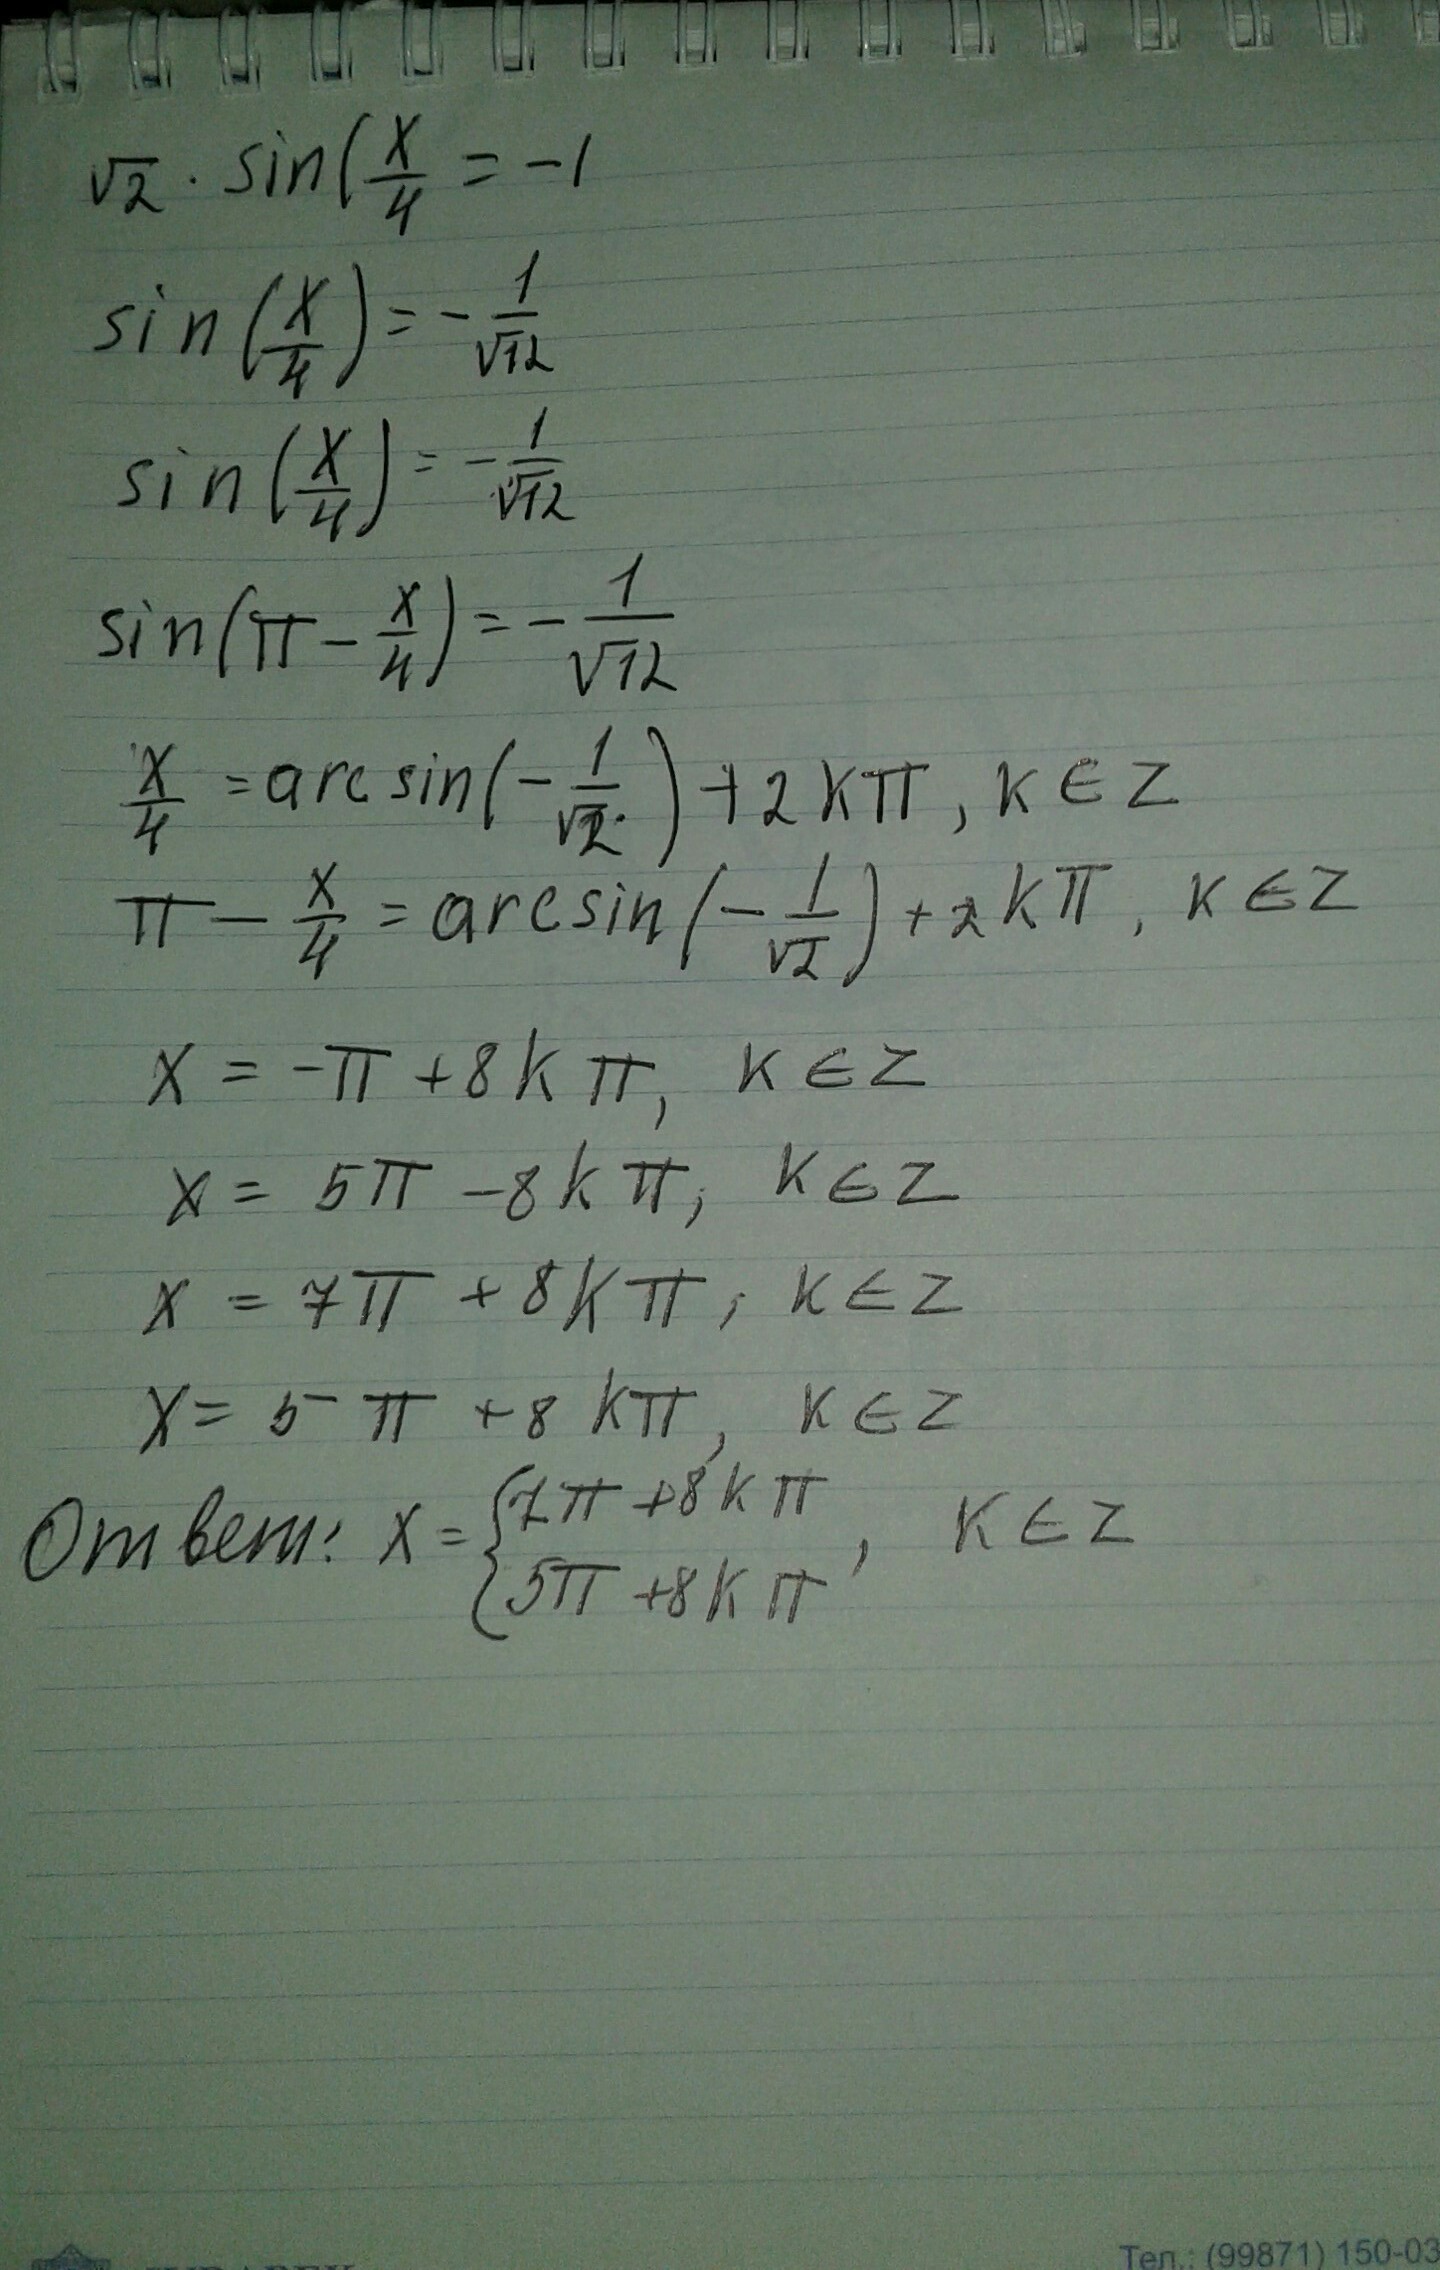 √2 · sin(x/4 = -1
sin(x/4) = -1/√12
sin(x/4) = -1/√12
sin(π - x/4) = -1/√12
x/4 = arcsin(-1/√2) + 2kπ, k ∈ Z
π - x/4 = arcsin(-1/√2) + 2kπ, k ∈ Z
x = -π + 8kπ, k ∈ Z
x = 5π - 8kπ, k ∈ Z
x = 7π + 8kπ, k ∈ Z
x = 5π + 8kπ, k ∈ Z
Ответ: x = {7π + 8kπ
5π + 8kπ, k ∈ Z
Тел.: (99871) 150-03